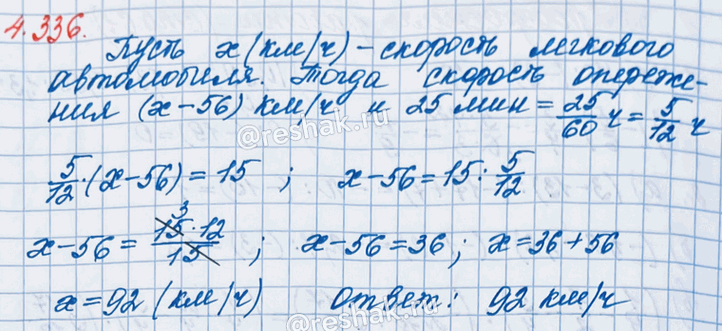 4.336.
Пусть x (км/ч) - скорость легкового
автомобиля. Тогда скорость опереже-
ния (x-56) км/ч и 25 мин = 25/60 ч = 5/12 ч
@reshak.ru
5/12 · (x-56) = 15 ; x-56 = 15 : 5/12
3
x-56 = 15·12/15 ; x-56 = 36 ; x = 36 + 56
x = 92 (км/ч) Ответ: 92 км/ч
@reshak.ru